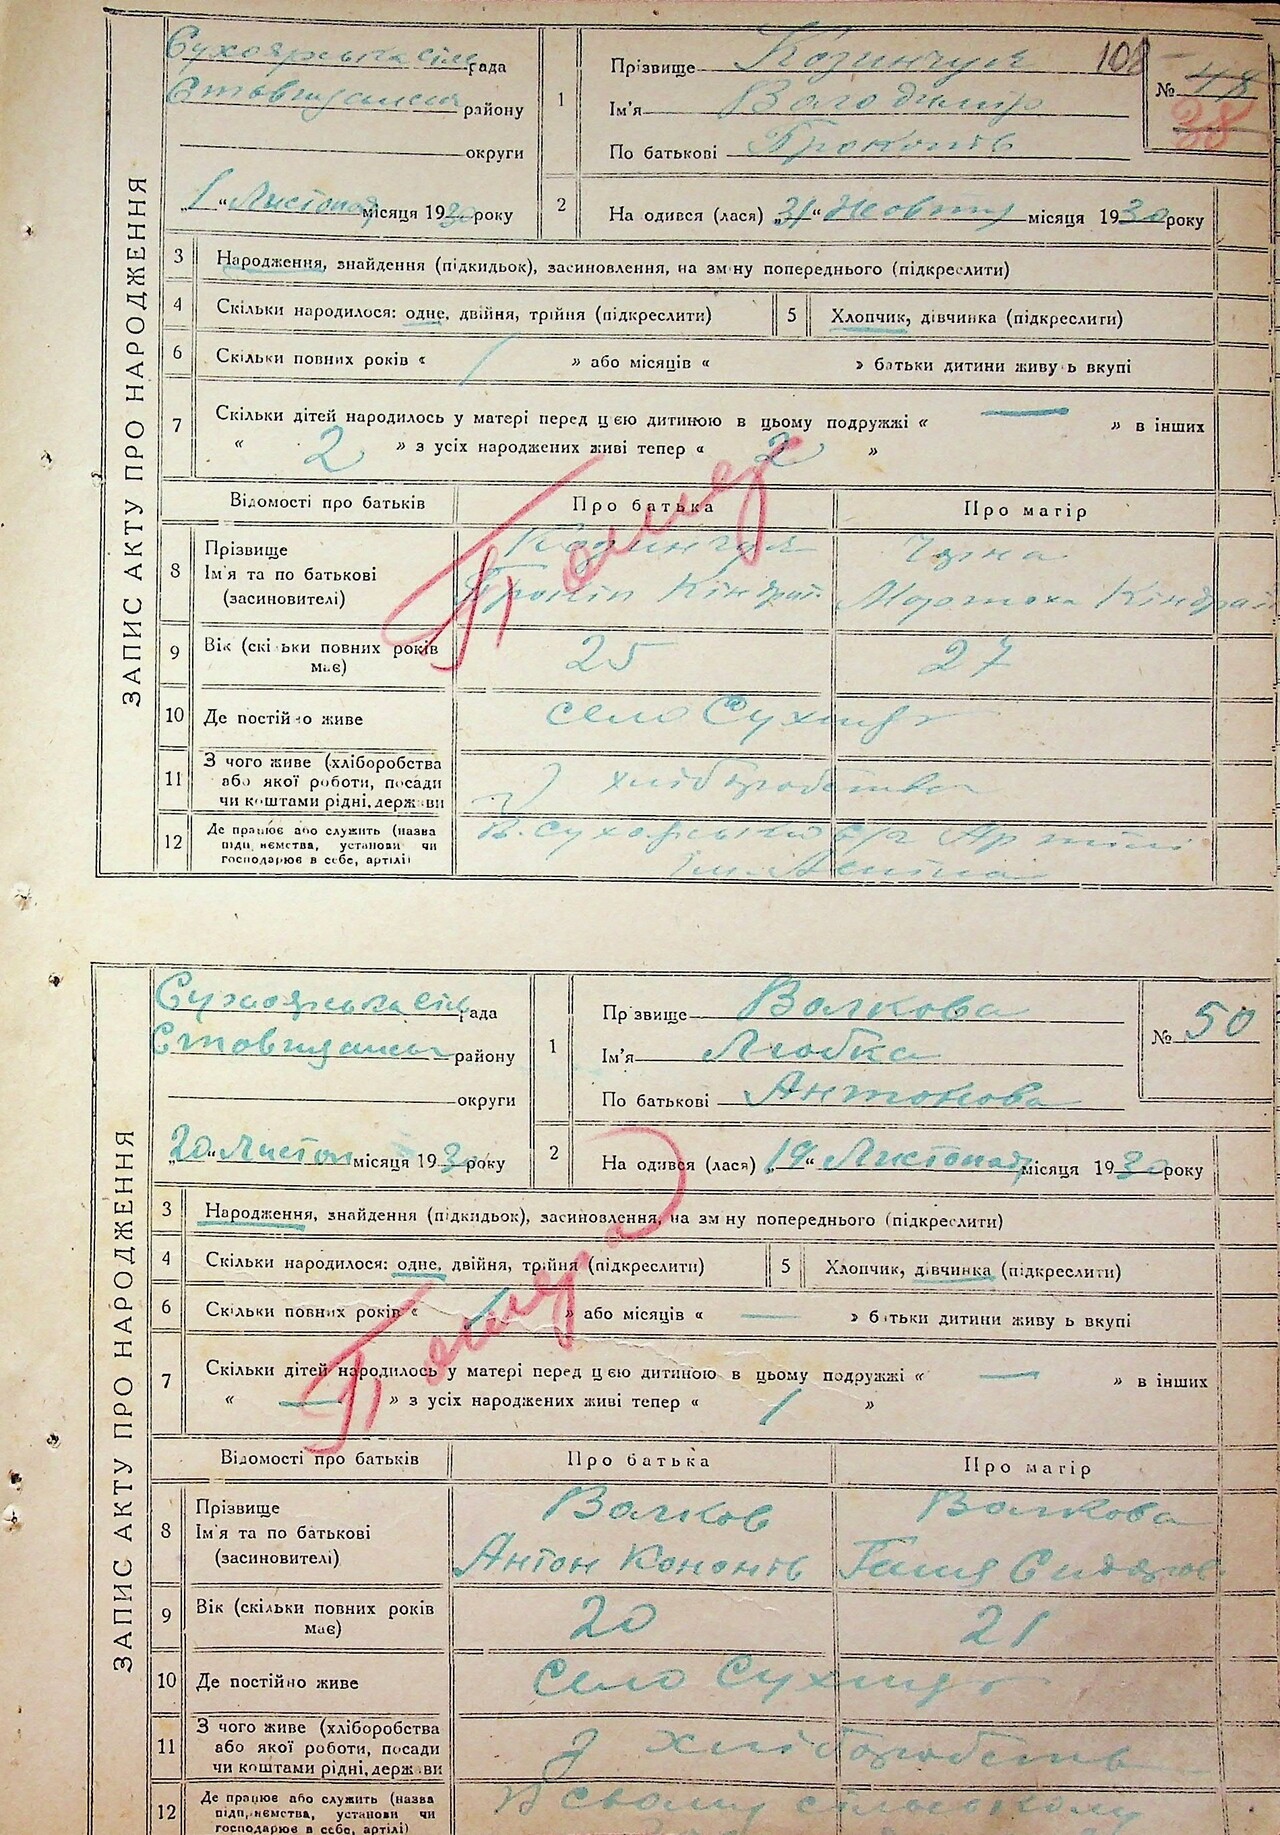 ЗАПИС АКТУ ПРО НАРОДЖЕННЯ
Сухоярська сіль рада
району
округи
"1" Листопад місяця 1930 року
1
Прізвище
Ім'я Володимір
По батькові Прокопів
108
№ 48
38
2
На одився (лася) "31" Жовтня місяця 1930 року
3
Народження, знайдення (підкидьок), засиновлення, на зміну попереднього (підкреслити)
4
Скільки народилося: одне, двійня, трійня (підкреслити)
5
Хлопчик, дівчинка (підкреслити)
6
Скільки повних років « / » або місяців « » батьки дитини живуть вкупі
7
Скільки дітей народилось у матері перед цією дитиною в цьому подружжі « — » в інших
« 2 » з усіх народжених живі тепер « 2 »
Відомості про батьків
Про батька
Про матір
8
Прізвище
Ім'я та по батькові
(засиновителі)
Прокіп Кіндрат.
Чорна
Кіндрат
Помер
9
Вік (скільки повних років
має)
25
27
10
Де постійно живе
село Сухий Яр
11
З чого живе (хліборобства
або якої роботи, посади
чи коштами рідні, держави
З хліборобства
12
Де працює або служить (назва
підприємства, установи чи
господарює в себе, артілі)
В. Сухоярський с/г Артілі
Ім. Леніна
ЗАПИС АКТУ ПРО НАРОДЖЕННЯ
Сухоярська сіль рада
району
округи
"20" Листоп місяця 1930 року
1
Прізвище Волкова
Ім'я Любка
По батькові Антонова
№ 50
2
На одився (лася) "19" Листопад місяця 1930 року
3
Народження, знайдення (підкидьок), засиновлення, на зміну попереднього (підкреслити)
4
Скільки народилося: одне, двійня, трійня (підкреслити)
5
Хлопчик, дівчинка (підкреслити)
6
Скільки повних років « 1 » або місяців « — » батьки дитини живуть вкупі
7
Скільки дітей народилось у матері перед цією дитиною в цьому подружжі « — » в інших
« — » з усіх народжених живі тепер « 1 »
Помер
Відомості про батьків
Про батька
Про матір
8
Прізвище
Ім'я та по батькові
(засиновителі)
Волков
Антон Кононів
Волкова
Ганя Сидорів
9
Вік (скільки повних років
має)
20
21
10
Де постійно живе
село Сухий Яр
11
З чого живе (хліборобства
або якої роботи, посади
чи коштами рідні, держави
З хліборобств
12
Де працює або служить (назва
підприємства, установи чи
господарює в себе, артілі)
В своему сільському